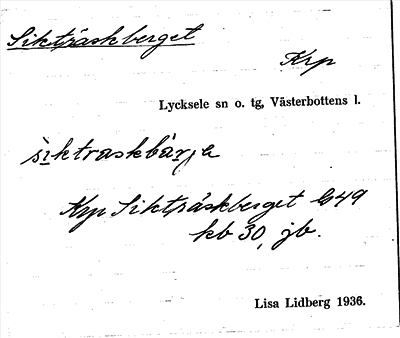 Sikträskberget
Krp
Lycksele sn o. tg, Västerbottens l.
Krp Sikträskberget G49
kb 30, jb.
Lisa Lidberg 1936.